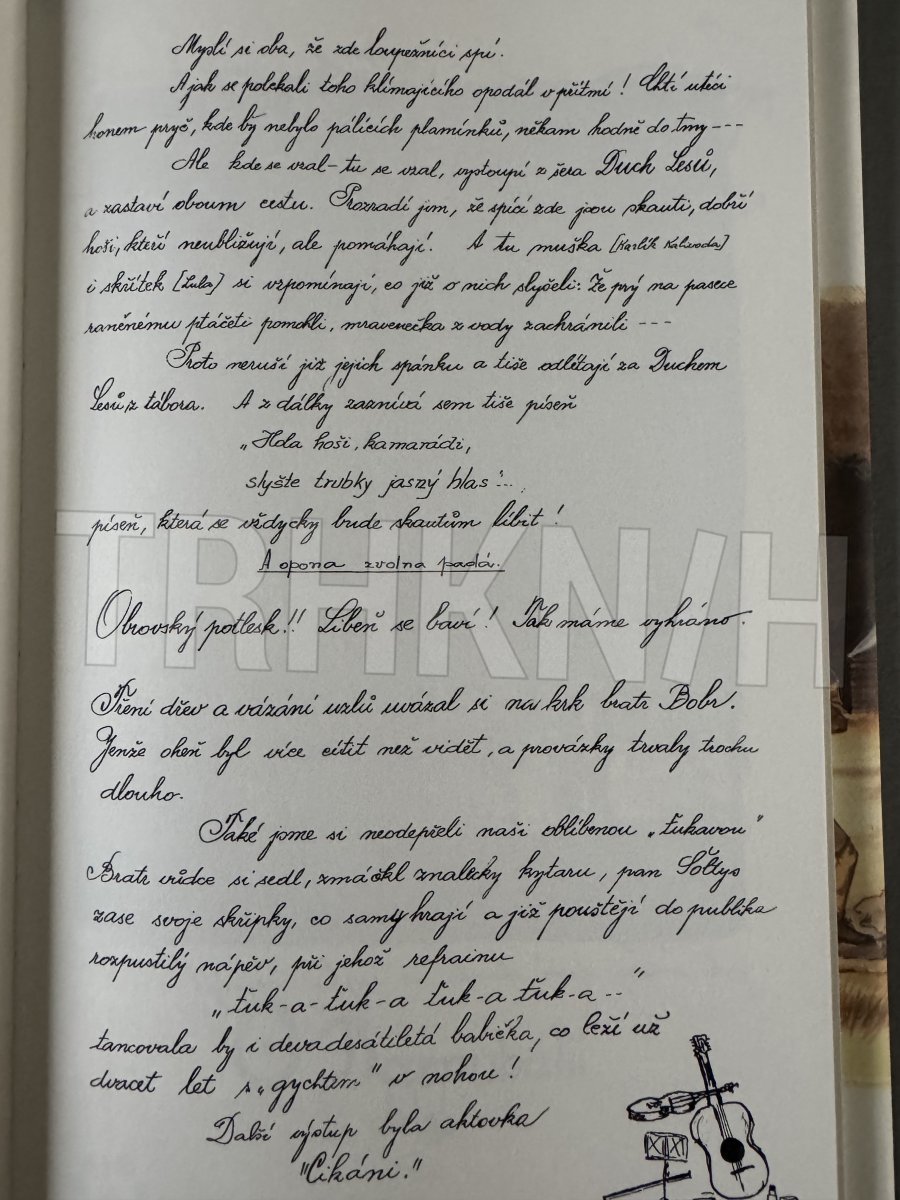 Myslí si oba, že zde loupežníci spí.
A jak se polekali toho klímajícího opodál v přítmí! Chtí utéci
honem pryč, kde by nebylo pálících plamínků, někam hodně do tmy---
Ale kde se vzal-tu se vzal, vystoupí z šera Duch Lesů,
a zastaví oboum cestu. Prozradí jim, že spící zde jsou skauti, dobří
hoši, kteří neubližují, ale pomáhají. A tu muška [Karlík Kalivoda]
i skřítek [Lula] si vzpomínají, co již o nich slyšeli: Že prý na pasece
raněnému ptáčeti pomohli, mravenečka z vody zachránili ---
Proto neruší již jejich spánku a tiše odlétají za Duchem
Lesů, z tábora. A z dálky zaznívá sem tiše píseň
„Hola hoši, kamarádi,
slyšte trubky jasný hlas"...
píseň, která se vždycky bude skautům líbit!
A opona zvolna padá.
Obrovský potlesk!! Libeň se baví! Tak máme vyhráno.
Tření dřev a vázání uzlů uvázal si na krk bratr Bobr.
Jenže oheň byl více cítit než vidět, a provázky trvaly trochu
dlouho.
Také jsme si neodepřeli naši oblíbenou „ťukavou"
Bratr vůdce si sedl, zmáčkl znalecky kytaru, pan Šoltys
zase svoje skřipky, co samy hrají a již pouštějí do publika
rozpustilý nápěv, při jehož refrainu
„ťuk-a-ťuk-a ťuk-a ťuk-a--"
tancovala by i devadesátiletá babička, co leží už
dvacet let s „gychtem" v nohou!
Další výstup byla aktovka
"Cikáni."
TRHKN/H